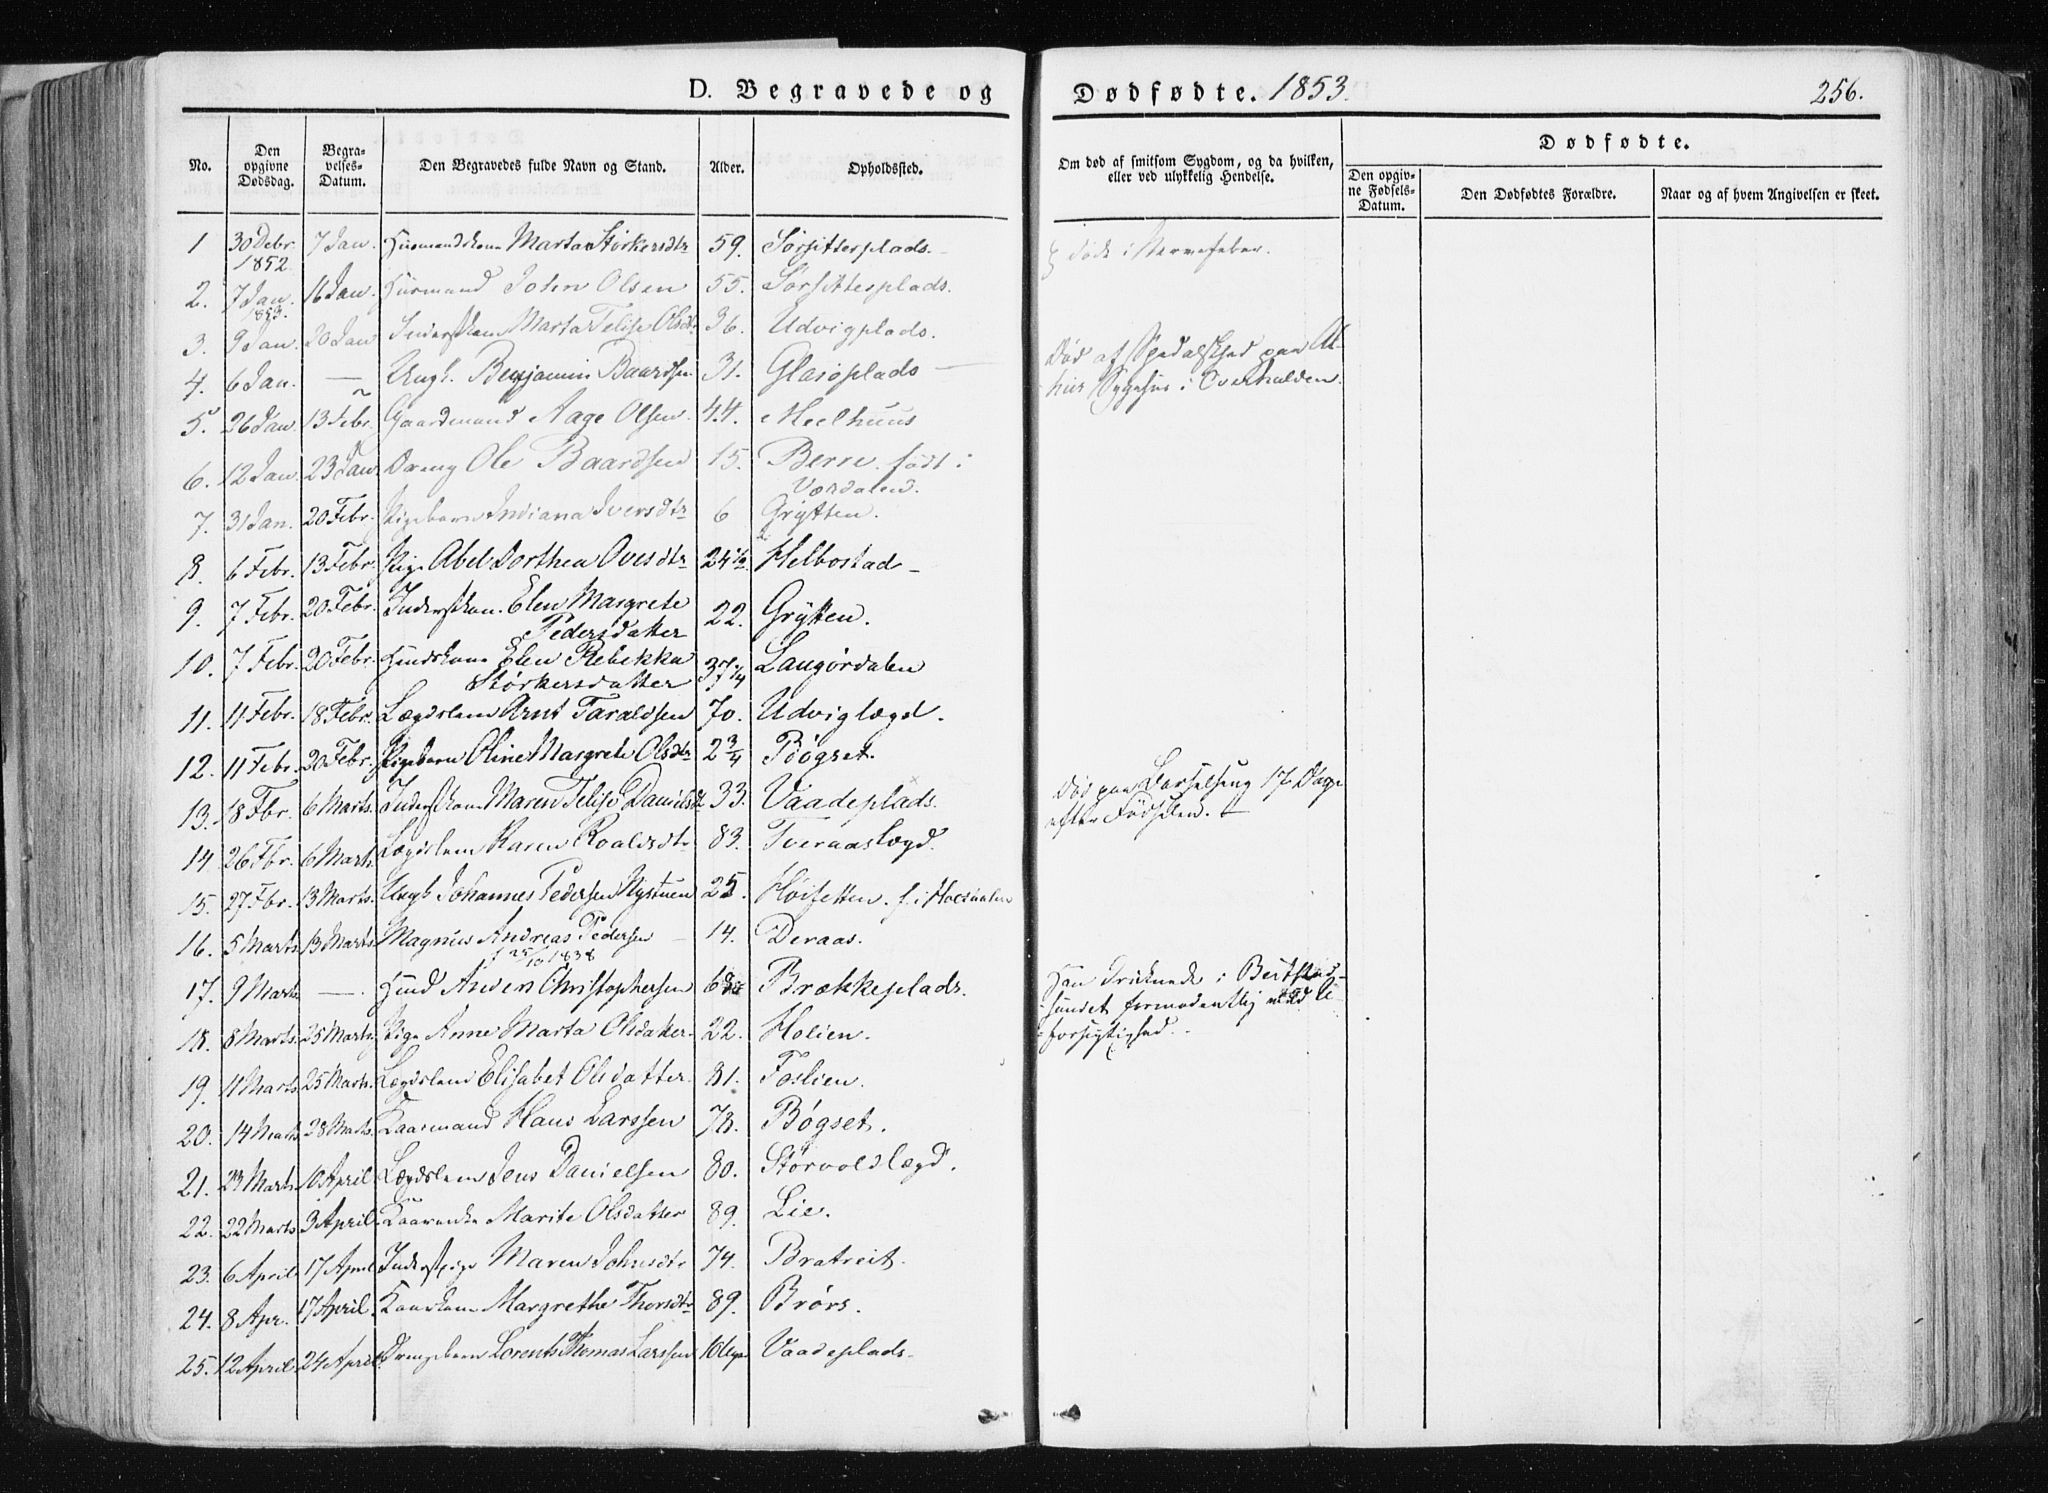 D. Begravede og Dødfødte. 1853. 256.
No.
Den opgivne Dødsdag.
Begravelses-Datum.
Den Begravedes fulde Navn og Stand.
Alder.
Opholdssted.
Om død af smitsom Sygdom, og da hvilken,
eller ved ulykkelig Hendelse.
Dødfødte.
Den opgivne Fødsels-Datum.
Den Dødfødtes Forældre.
Naar og af hvem Angivelsen er skeet.
1 30 Debr. 1852 7 Jan. Huusmandskone Marta Størkersdtr 59. Sørsittesplads.
død i Nervefeber.
2. 7 Jan. 1853. 16 Jan. Huusmand John Olsen 55. Sørsittesplads.
3. 9 Jan. 20 Jan Inderstkone Marta Felise Olsdtr 36. Udvigplads.
4. 6 Jan. — Ungk. Benjamin Baardsen 31. Glasøplads
Død af Spedalskhed paa
Sygehus i Overhalden.
5. 26 Jan. 13 Febr. Gaardmand Aage Olsen. 44. Meelhuus
6. 12 Jan. 23 Jan. Dreng Ole Baardsen 15. Berre. født i
Værdalen.
7. 31 Jan. 20 Febr. Pigebarn Indiana Iversdtr 6 Grytten.
8. 6 Febr. 13 Febr. Pige Abel Dorthea Ovesdtr 24 1/2 Helbostad
9. 7 Febr. 20 Febr. Inderstkone Elen Margrete
Pedersdatter 22. Grÿtten.
10. 7 Febr. 20 Febr. Elen Rebekka
Størkersdatter 37 1/4 Langørdalen
11. 11 Febr. 18 Febr. Lægdslem Arnt Taraldsen 70. Udviglægd.
12. 11 Febr. 20 Febr. Pigebarn Oline Margrete Olsdtr 2 3/4 Bøgset.
13. 18 Fbr. 6 Marts. Inderstkone Maren Felise Danielsdtr 33. Vaadeplads.
død paa Barselseng 17 Dage
efter Fødselen.
14 26 Fbr. 6 Marts. Lægdslem Karen Roaldsdtr 83. Tveraaslægd.
15. 27 Fbr. 13 Marts. Ungk Johannes Pedersen Nystuen 25. Høisetten. f. i
16. 5 Marts 13 Marts. Magnus Andreas Pedersen 14. Deraas.
f 25/10 1838
17. 9 Marts — Huusmd Christophersen Brækkeplads.
Han druknede i Beitstad-
sundet formodentlig ved U-
forsigtighed.
18. 8 Marts. 25 Marts Pige Anne Marta Olsdatter. 22. Holien.
19. 11 Marts. 25 Marts. Lægdslem Elisabet Olsdatter. 81. Foslien.
20. 14 Marts 28 Marts. Kaarmand Hans Larssen 78. Bøgset.
21. 23 Marts. 10 April Lægdslem Jens Danielsen 80. Størvoldlægd.
22. 22 Marts 3 April. Kaarenke Marite Olsdatter 89. Lie.
23. 6 April 17 April Inderstpige Maren Johnsdtr 74. Bratreit.
24. 8 Apr. 17 April. Kaarkone Margrethe Thorsdtr 89. Brørs.
25. 12 April 24 April. Drengebarn Lorents Thomas Larssen Vaadeplads.